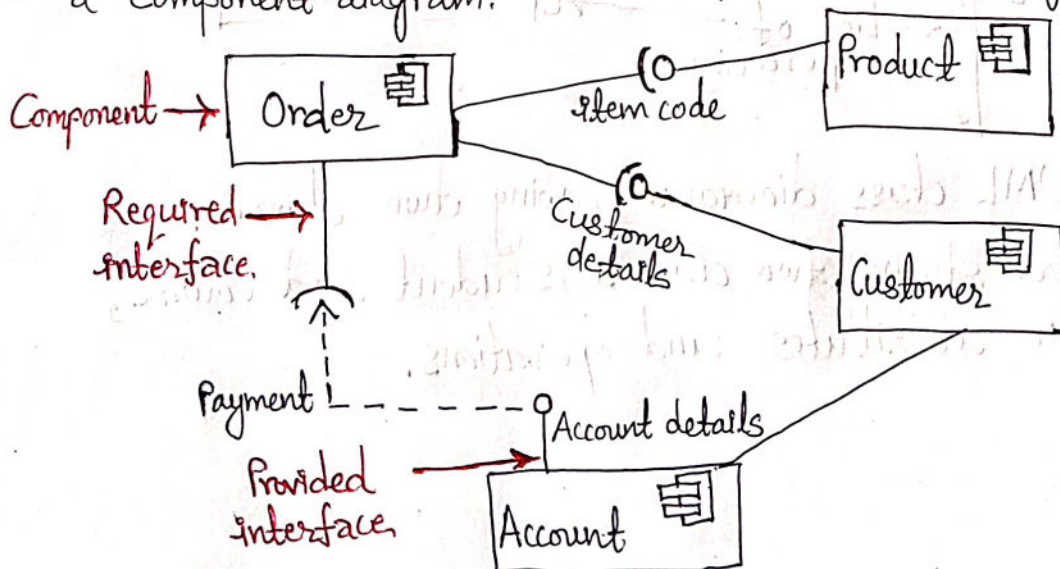 a component diagram.
Component
Order
item code
Product
Required
interface.
Customer
details
Customer
Payment
Account details
Provided
interface
Account